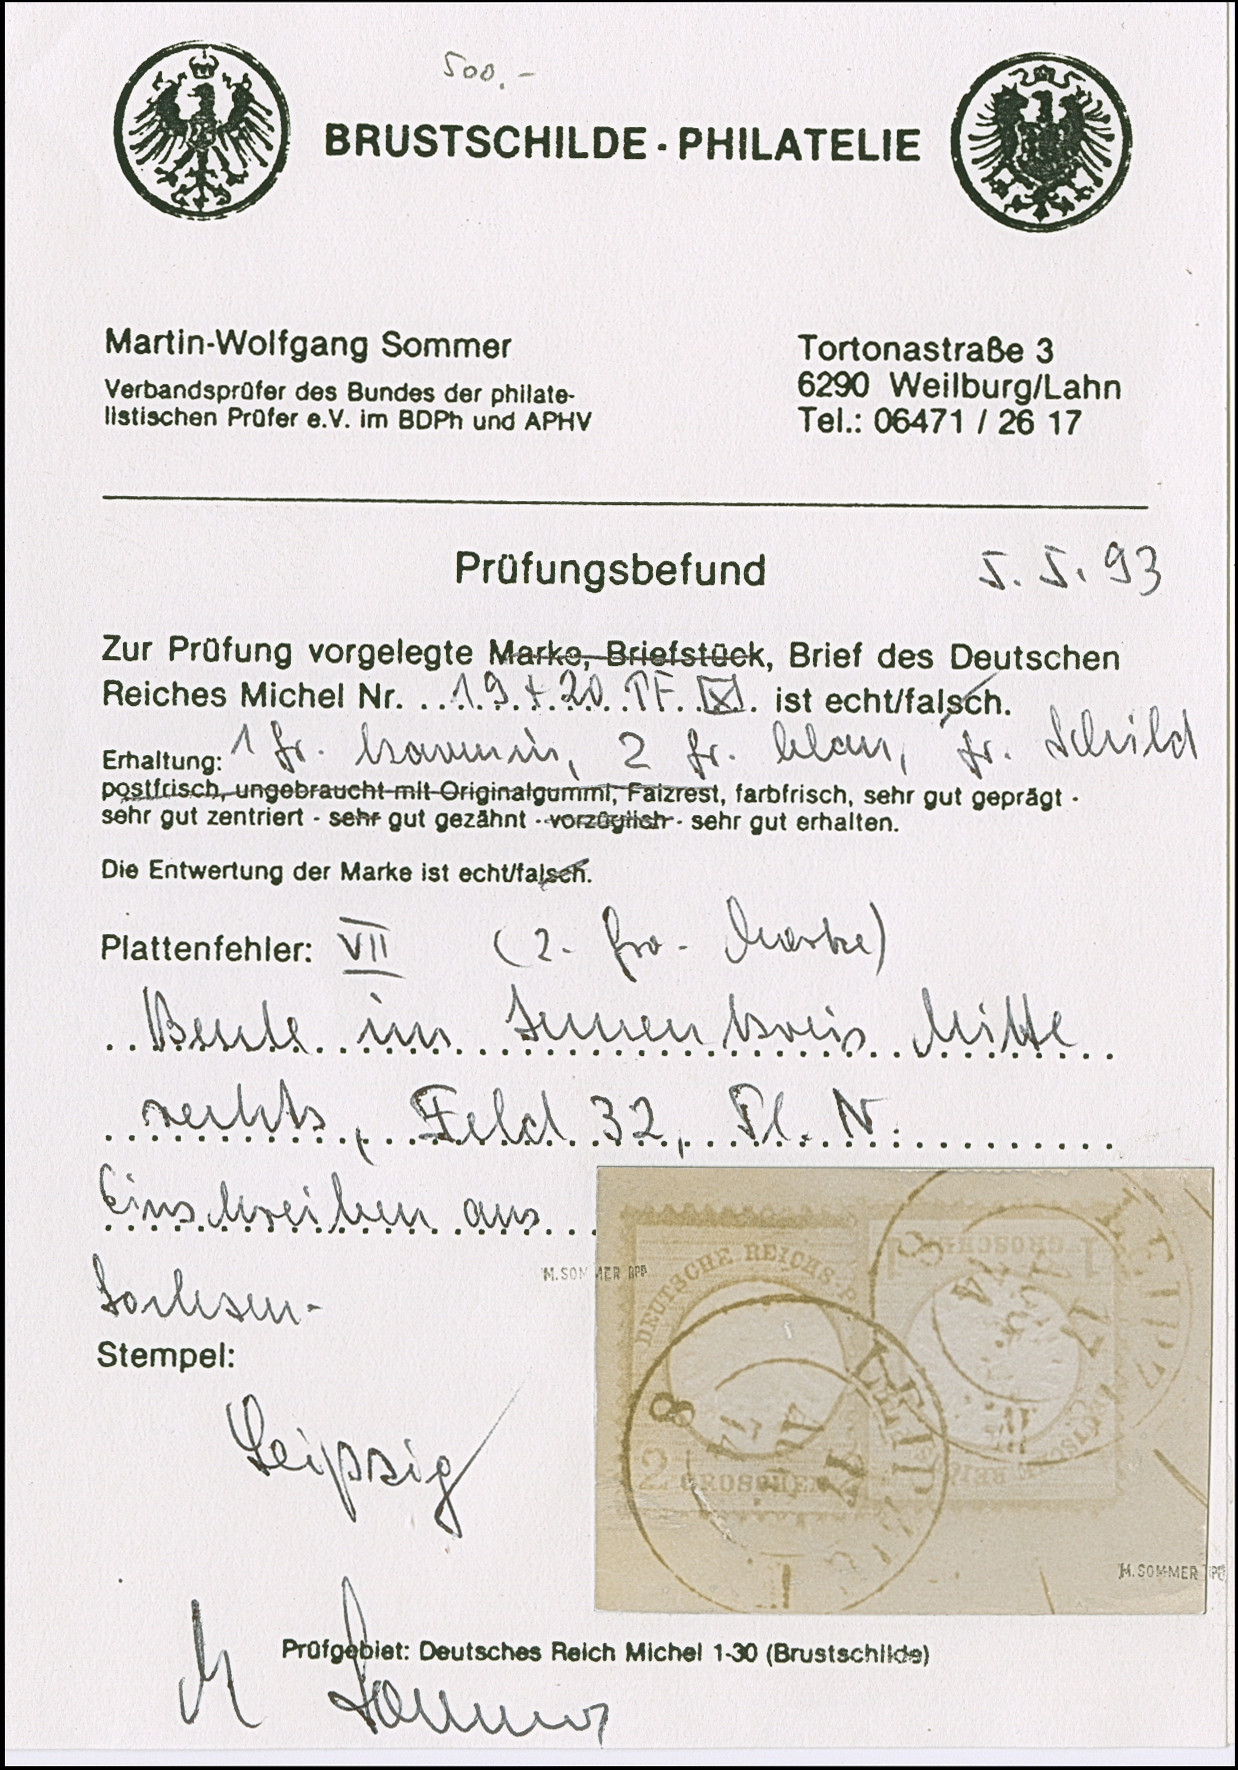 500.-
BRUSTSCHILDE - PHILATELIE
Martin-Wolfgang Sommer
Verbandsprüfer des Bundes der philate-
listischen Prüfer e.V. im BDPh und APHV
Tortonastraße 3
6290 Weilburg/Lahn
Tel.: 06471 / 26 17
Prüfungsbefund 5. 5. 93
Zur Prüfung vorgelegte Marke, Briefstück, Brief des Deutschen
Reiches Michel Nr. 19 + 20 PF. ist echt/falsch.
Erhaltung: 1 gr. karmin, 2 gr. blau, gr. Schild
postfrisch, ungebraucht mit Originalgummi, Falzrest, farbfrisch, sehr gut geprägt -
sehr gut zentriert - sehr gut gezähnt - vorzüglich - sehr gut erhalten.
Die Entwertung der Marke ist echt/falsch.
Plattenfehler: VII (2- Gro- Marke)
Beule im Innenkreis Mitte
rechts, Feld 32, Pl. N.
Einschreiben aus
Sachsen-
Stempel:
Leipzig
DEUTSCHE REICHS-P
2 GROSCHEN
1 GROSCHEN 1
LEIPZIG
LEIPZ
8
17
M. SOMMER BPP
M. SOMMER BPP
Prüfgebiet: Deutsches Reich Michel 1-30 (Brustschilde)
M Sommer